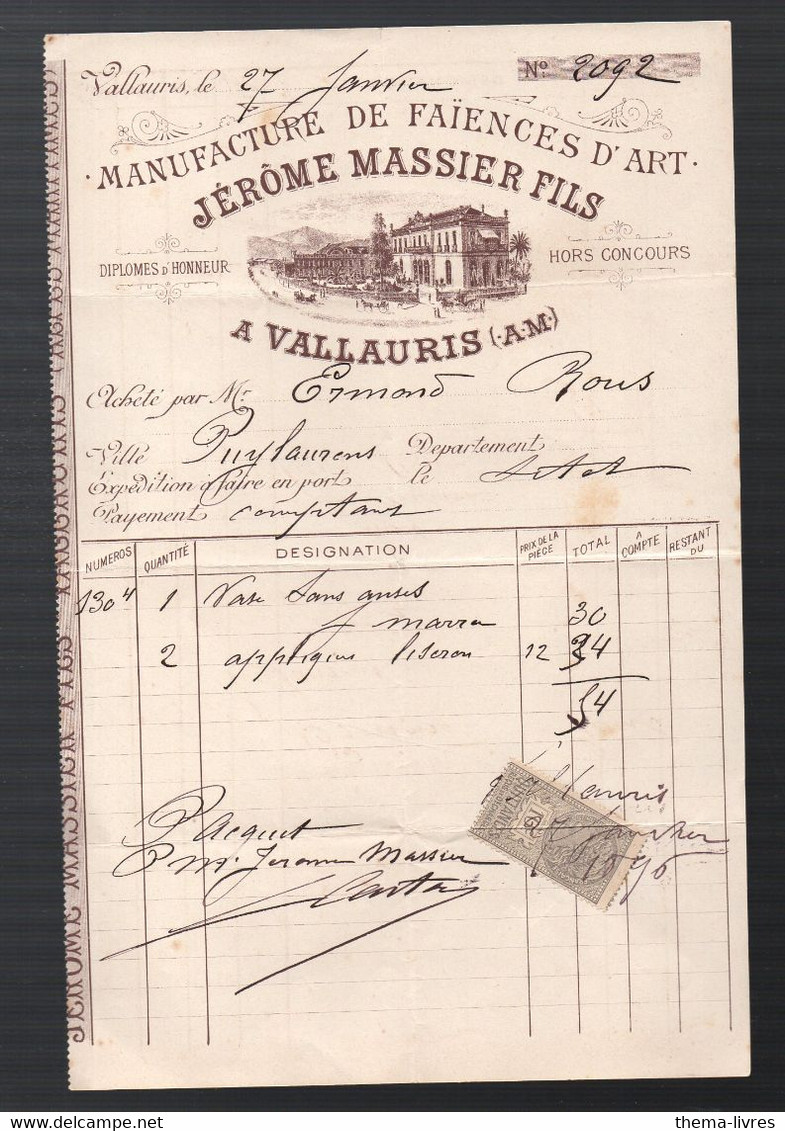 Vallauris, le 27 Janvier Nº 2092
MANUFACTURE DE FAÏENCES D'ART
JÉRÔME MASSIER FILS
DIPLOMES D'HONNEUR HORS CONCOURS
A VALLAURIS (A.M.)
Acheté par Mr. Ermond Rous
Ville Puylaurens Departement
Expédition à faire en port le
Payement comptant
NUMEROS QUANTITÉ DESIGNATION PRIX DE LA PIÈCE TOTAL A COMPTE RESTANT DU
1304 1 Vase sans anses
marron 30
2 appliques liseron 12 24
54
Vallauris
27 Janvier
1896
Pacquet
P Mr. Jerome Massier
JÉRÔME MASSIER FILS VALLAURIS
thema-livres
delcampe.net
thema-livres